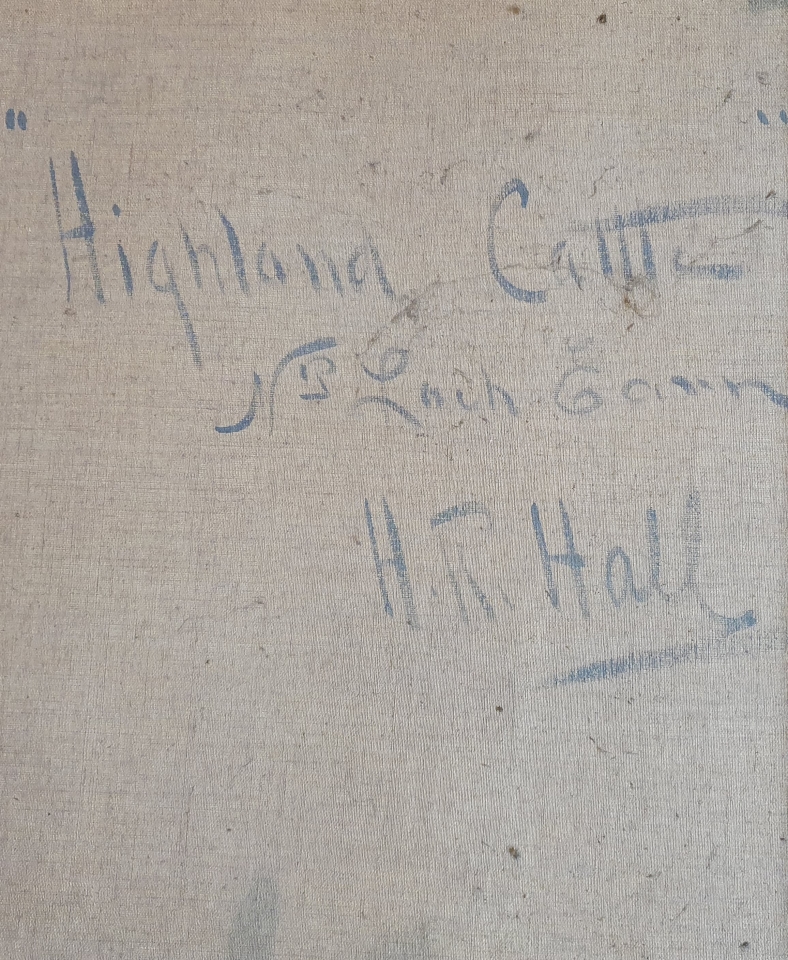 "Highland Cattle"
Nr Loch
H.R. Hall